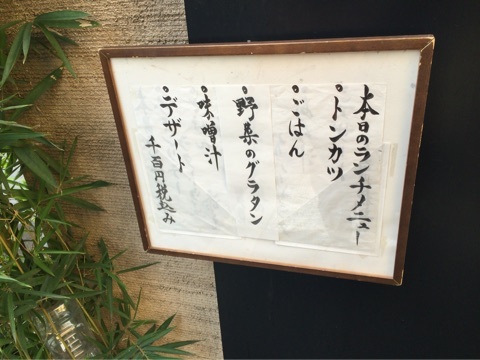 本日のランチメニュー
・トンカツ
・ごはん
・野菜のグラタン
・味噌汁
・デザート
千百円税込み